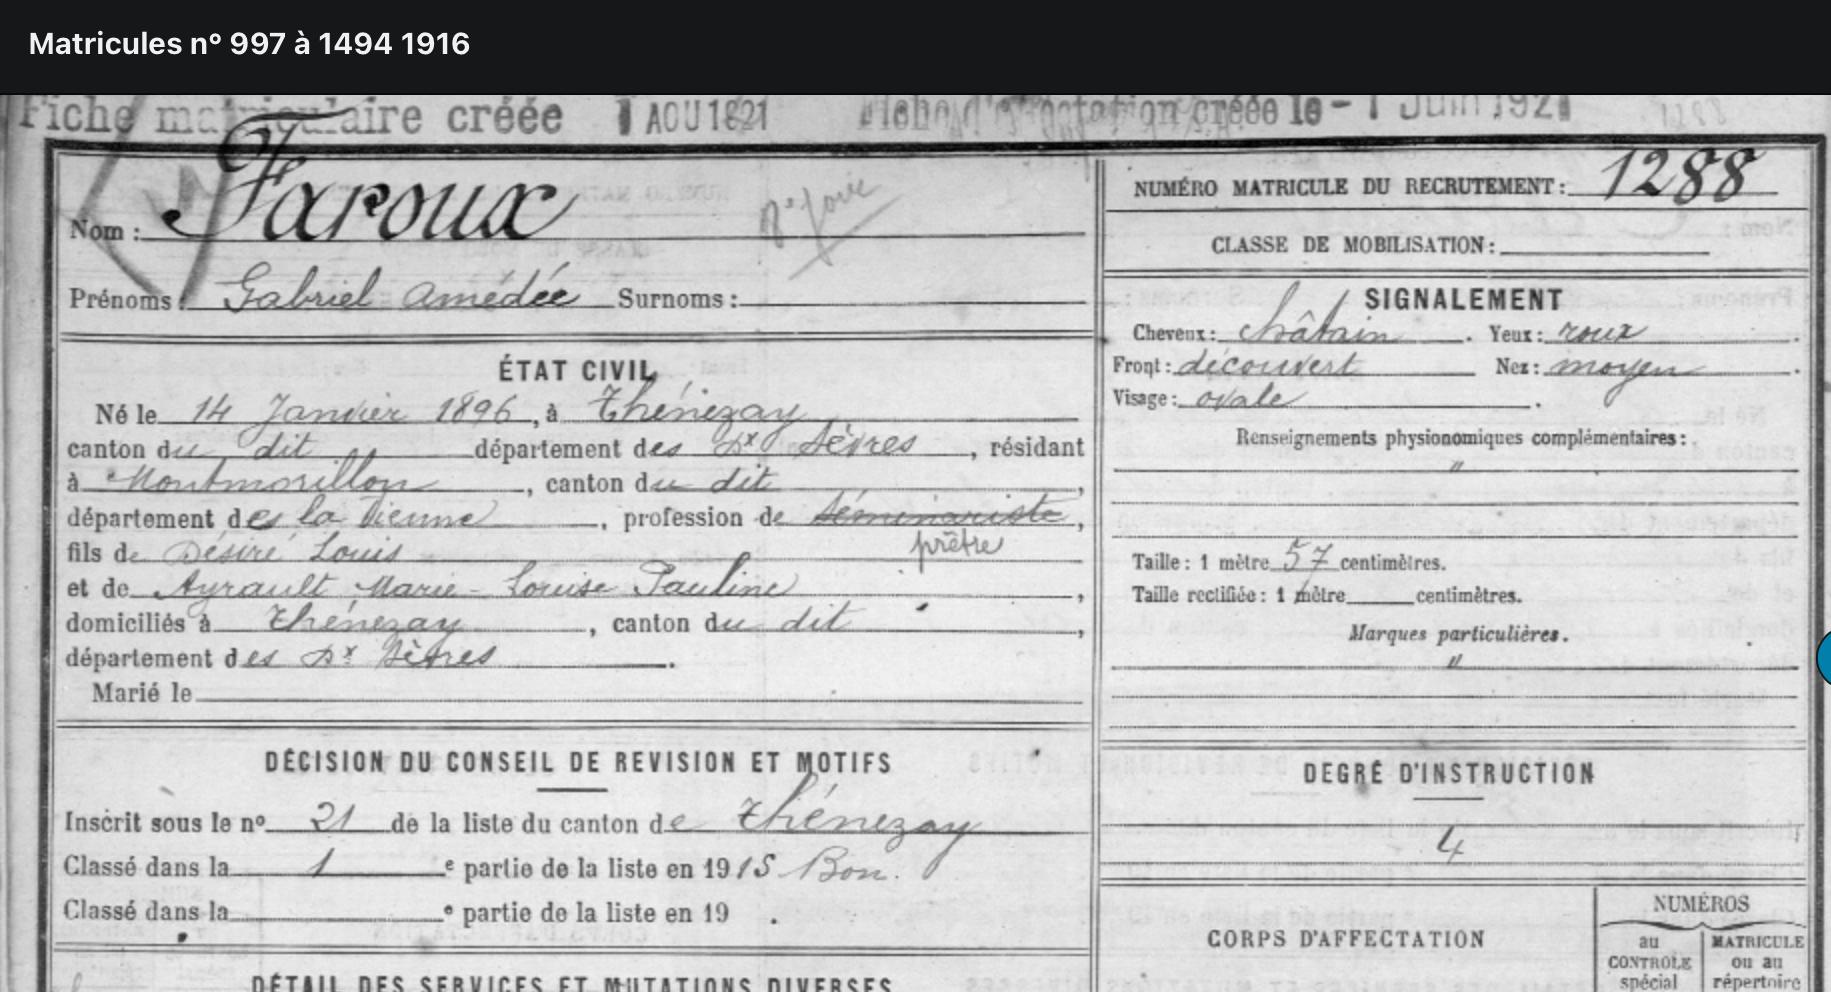 Matricules n° 997 à 1494 1916
Fiche matriculaire créée 1 AOU 1921 créée le - 1 Juin 1921
Nom : Faroux
Prénoms : Gabriel Amédée Surnoms :
ÉTAT CIVIL
Né le 14 Janvier 1896, à Thénezay
canton du dit département des Dx Sèvres, résidant
à Montmorillon, canton du dit,
département de la Vienne, profession de Séminariste,
prêtre
fils de Désiré Louis
et de Ayrault Marie-Louise Pauline,
domiciliés à Thénezay, canton du dit,
département des Dx Sèvres.
Marié le
DÉCISION DU CONSEIL DE REVISION ET MOTIFS
Inscrit sous le nº 21 de la liste du canton de Thénezay
Classé dans la 1 e partie de la liste en 1915 Bon.
Classé dans la e partie de la liste en 19 .
DÉTAIL DES SERVICES ET MUTATIONS DIVERSES
NUMÉRO MATRICULE DU RECRUTEMENT : 1288
CLASSE DE MOBILISATION :
SIGNALEMENT
Cheveux : châtain. Yeux : roux.
Front : découvert Nez : moyen.
Visage : ovale.
Renseignements physionomiques complémentaires :
"
Taille : 1 mètre 57 centimètres.
Taille rectifiée : 1 mètre centimètres.
Marques particulières.
"
DEGRÉ D'INSTRUCTION
4
CORPS D'AFFECTATION
NUMÉROS
au CONTROLE spécial
MATRICULE ou au répertoire